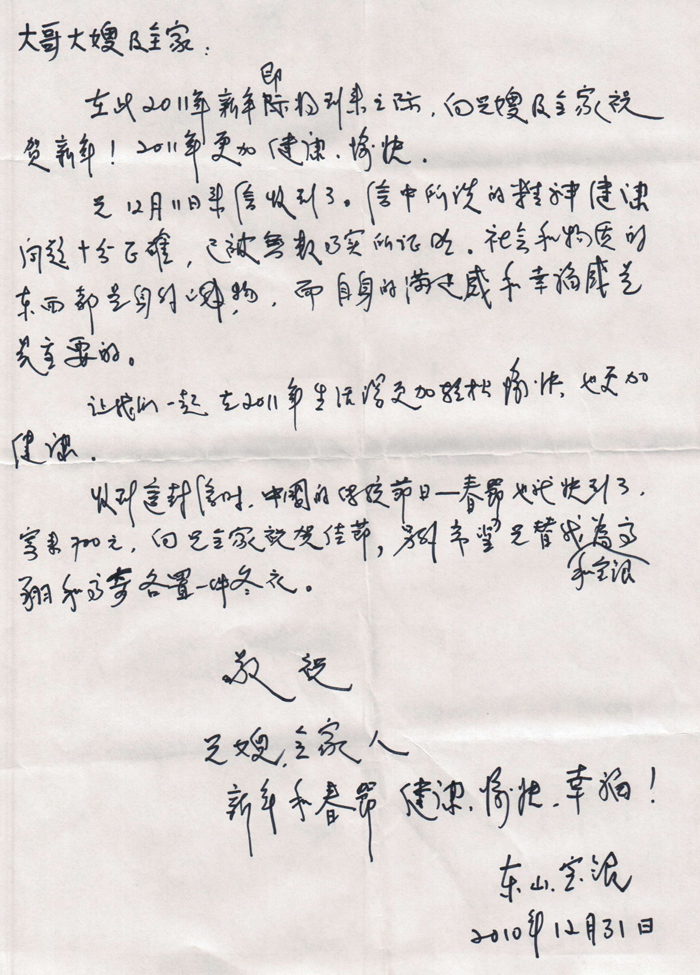 大哥大嫂及全家：
在此2011年新年即将到来之际，向兄嫂及全家祝
贺新年！2011年更加健康、愉快．
兄12月11日来信收到了。信中所说的精神健康
问题十分正确，已被无数事实所证明．社会和物质的
东西都是身外之物，而自身的满足感和幸福感是
最重要的。
让我们一起在2011年生活得更加轻松愉快，也更加
健康．
收到这封信时，中国的传统节日—春节也就快到了．
寄来700元，向兄全家祝贺佳节，另外希望兄替我和宝银为
翔和 各置一件冬衣。
敬祝
兄嫂、全家人
新年和春节 健康、愉快、幸福！
东山、宝银
2010年12月31日